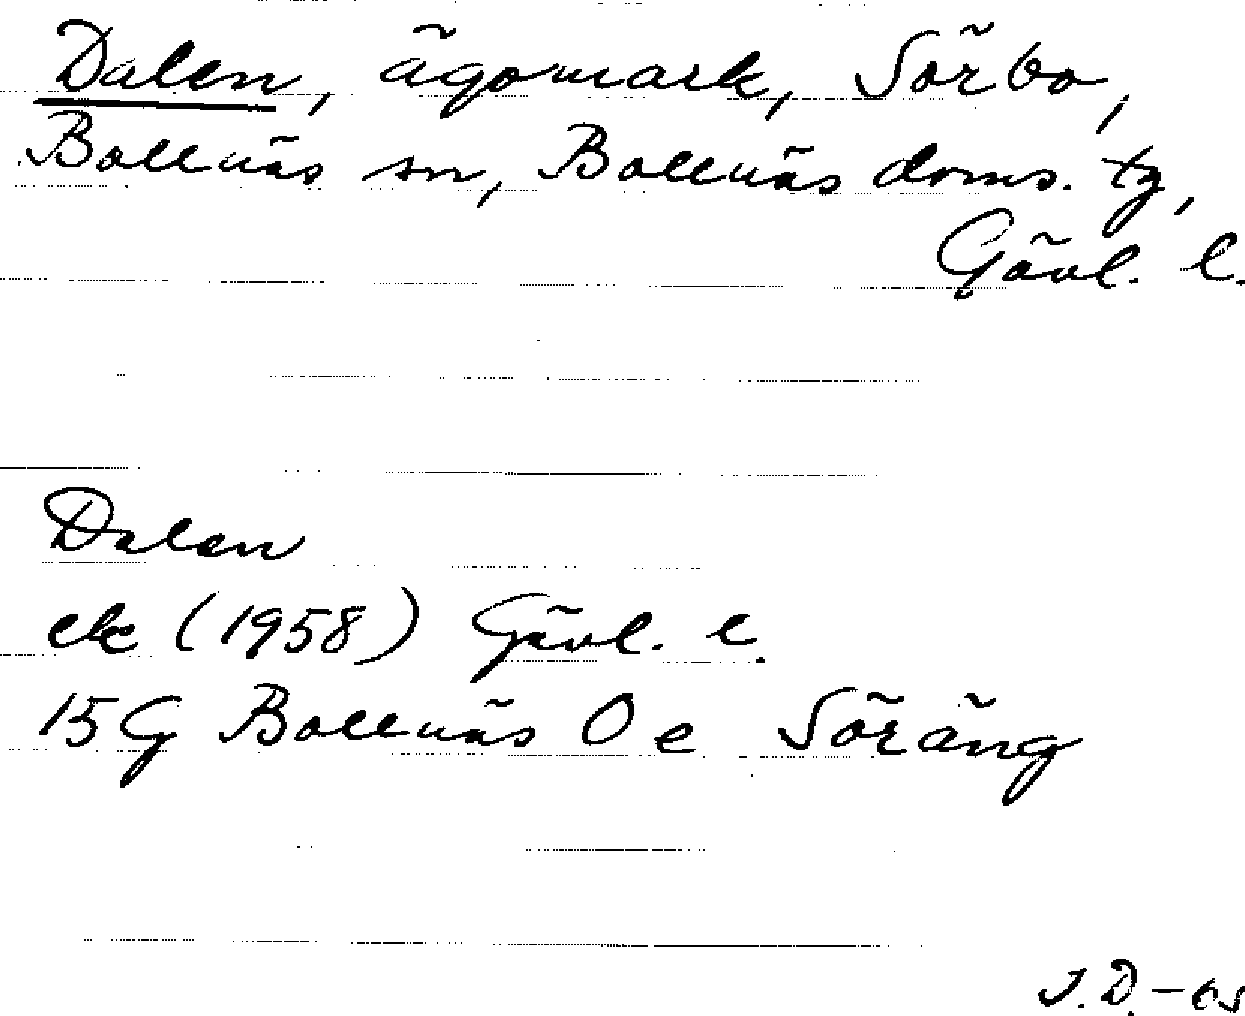 Dalen, ägomark, Sörbo,
Bollnäs sn, Bollnäs doms. tg,
Gävl. l.
Dalen
ek (1958) Gävl. l.
15G Bollnäs 0e Söräng
J.D.-65